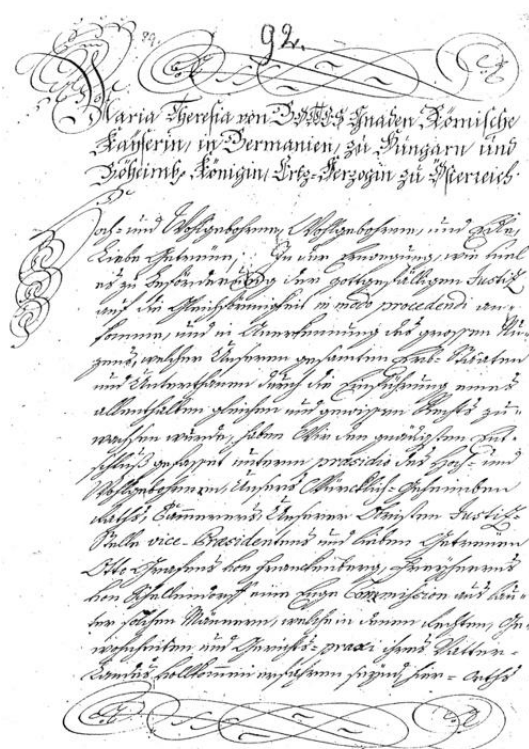 89.
92.
Maria Theresia von GOTTES Gnaden Römische
Kayserin, in Germanien, zu Hungarn und
Böheimb, Königin, Ertz-Herzogin zu Österreich
Hoch- und Wohlgebohrne, Wohlgebohrne, und Edle,
Liebe Getreüe, In der Erwegung, wie viel
es zu Beförderung der gottgefälligen Justiz
auf die Gleichförmigkeit in modo procedendi an-
komme, und in Anerkennung des grossen Nu-
zens, welcher Unseren gesamten Erb-Staaten
und Unterthanen durch die Einführung eines
allenthalben gleichen und gewissen Rechts zu-
wachsen würde, haben Wir den gnädigsten Ent-
schluß gefasset unterm præsidio des Hoch- und
Wohlgebohrnen, Unsers Würcklich-Geheimben
Raths, Cämmerers, Unserer Obristen Justiz-
Stelle vice-Præsidentens und lieben Getreüen
Otto Grafens von Franckenberg, Freyherrns
von Schellendorff eine Enge Commission aus lau-
ter solchen Männern, welche in denen Rechten, Ge-
wohnheiten und Gerichts-praxi ihres Vatter-
Landes vollkommen erfahren seynd hier-